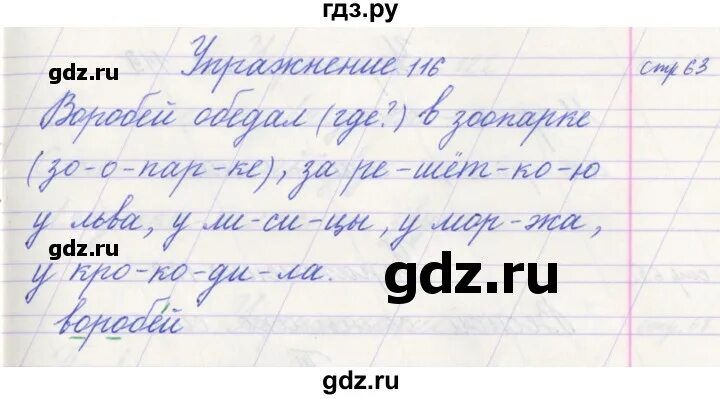 гдз.ру
gdz.ru
Упражнение 116
стр 63
Воробей обедал (где?) в зоопарке
(зо-о-пар-ке), за ре-шёт-ко-ю
gdz.ru
у льва, у ли-си-цы, у мор-жа,
gdz.ru
у кро-ко-ди-ла.
gdz.ru
воробей
gdz.ru